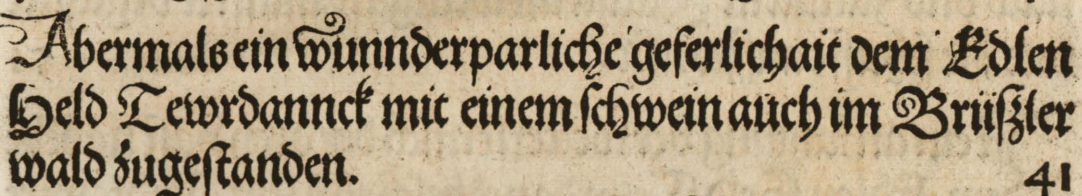 Abermals ein wunnderparliche geferlichait dem Edlen
Held Tewrdannck mit einem schwein auch im Brüßler
wald zugestanden. 41